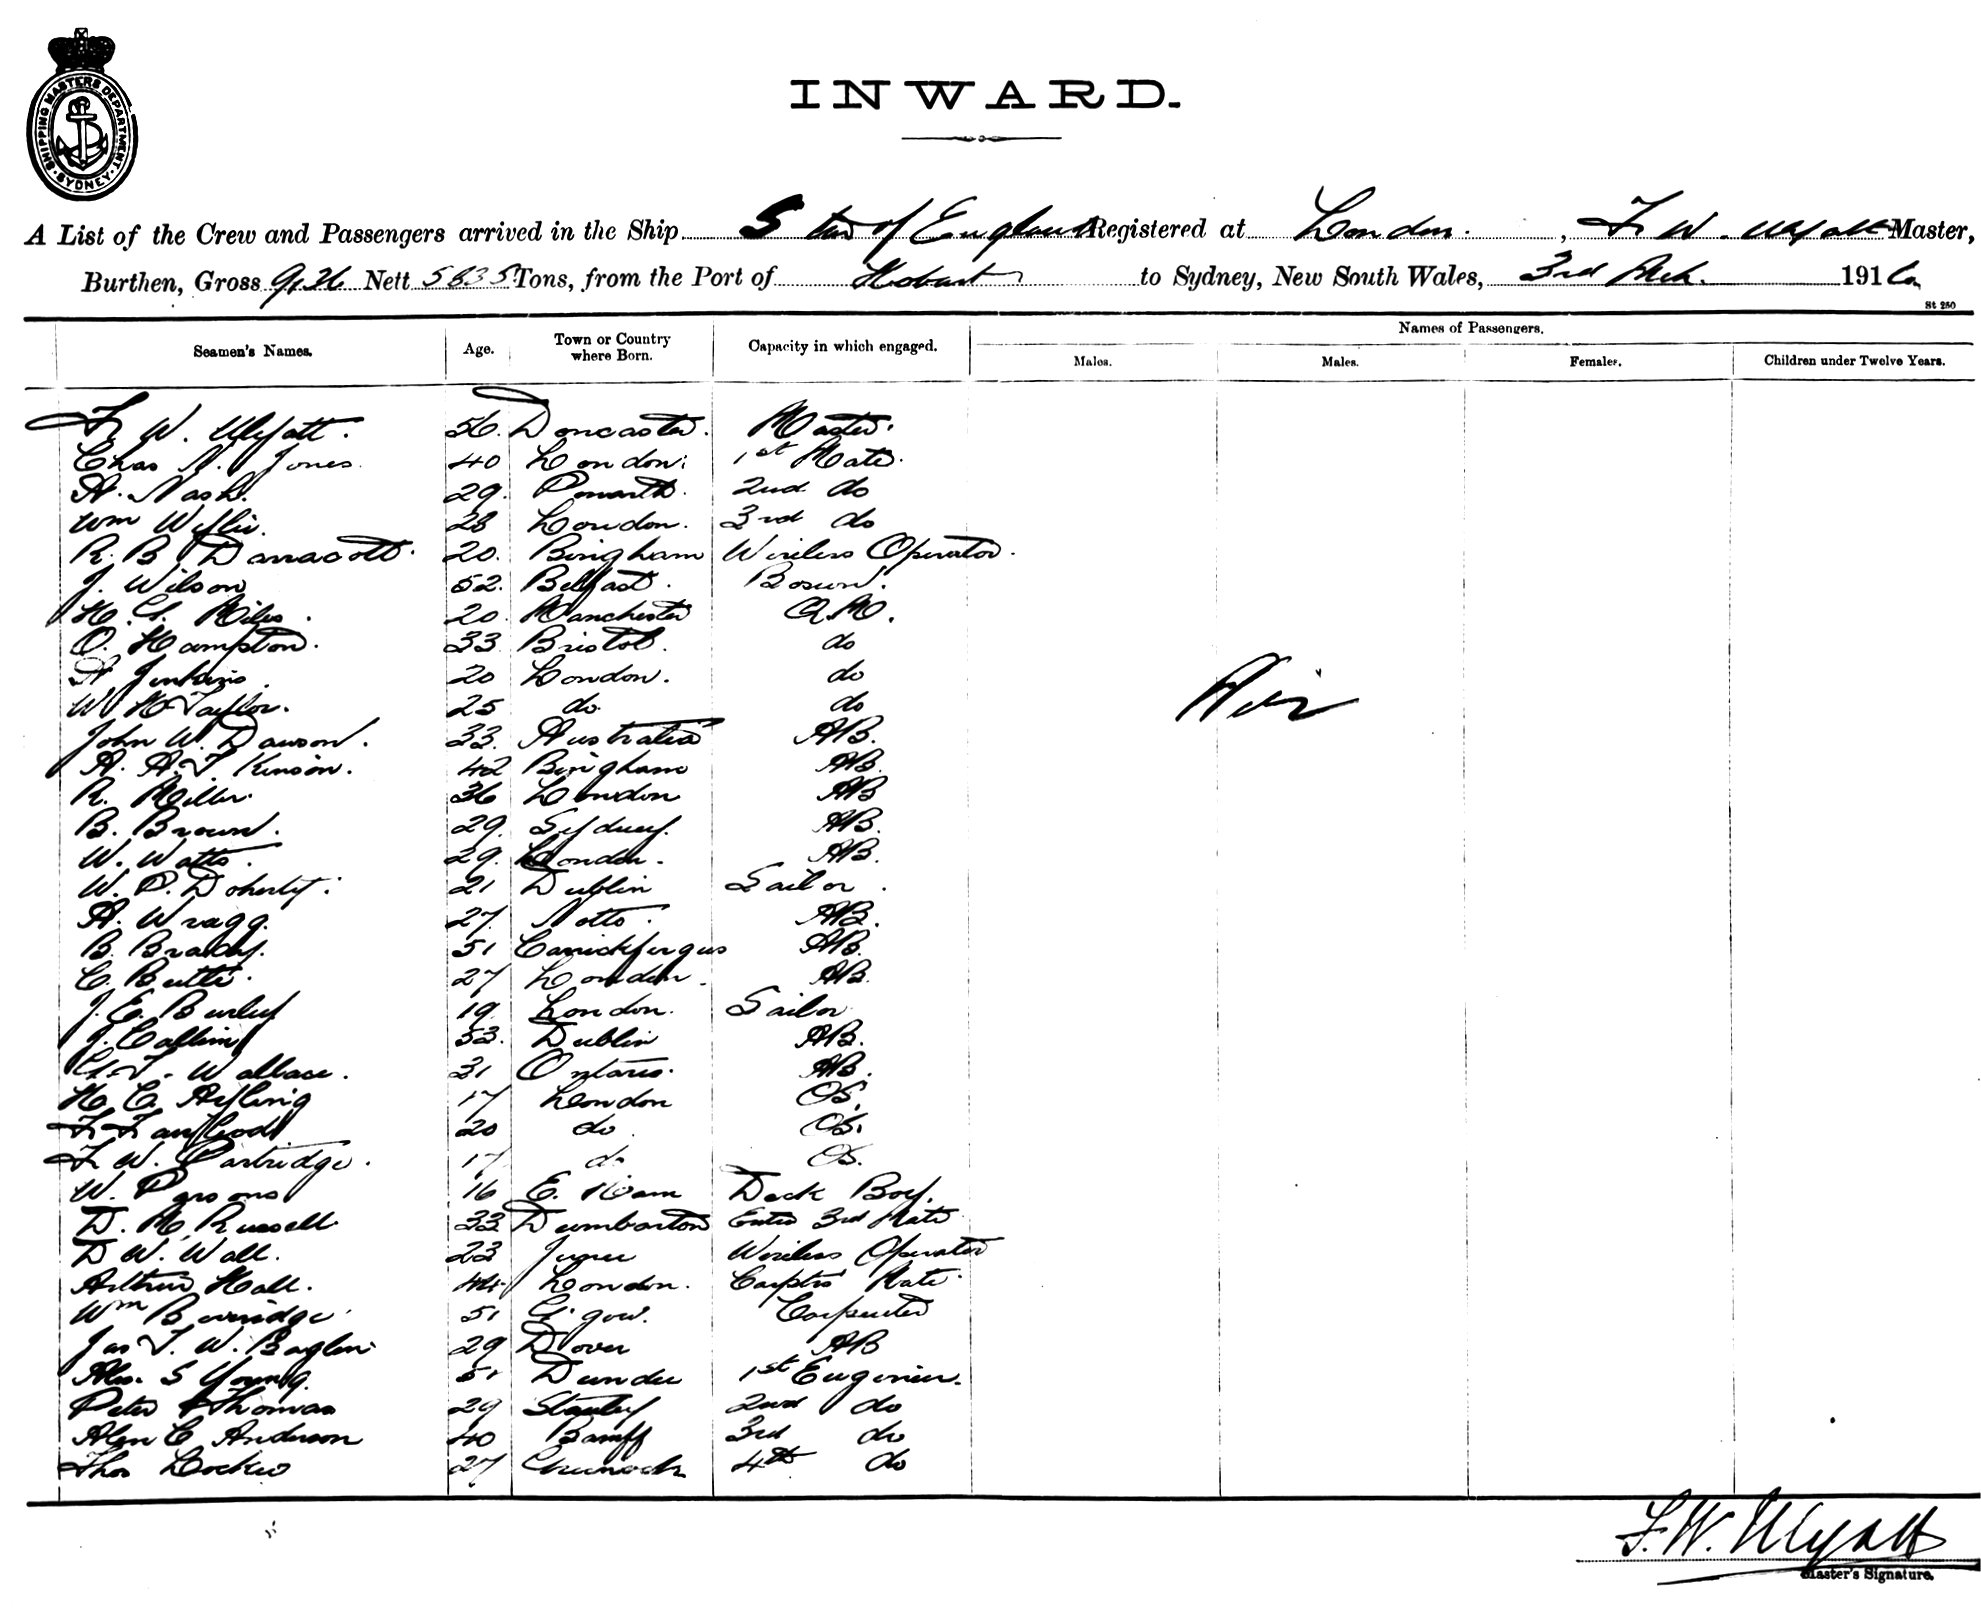 SHIPPING MASTERS DEPARTMENT. SYDNEY.
INWARD.
A List of the Crew and Passengers arrived in the Ship Star of England Registered at London. , F. W. Wyatt Master,
Burthen, Gross Nett 5835 Tons, from the Port of Hobart to Sydney, New South Wales, 3rd 1916
St 250
Seamen's Names. Age. Town or Country where Born. Capacity in which engaged. Names of Passengers.
Males. Males. Females. Children under Twelve Years.
F. W. Wyatt. 56. Doncaster. Master.
Chas A. Jones. 40 London. 1st Mate.
A. Nash. 29. 2nd do
Wm Wyllie. 28 London. 3rd do
R. B. Darracott. 20. Wireless Operator.
J. Wilson 52. Belfast. Bosun.
H. G. Miles. 20. Manchester Q.M.
O. Hampton. 33. Bristol. do
A Jenkins. 20 London. do
W H Taylor. 25 do. do
John W. Dawson. 33. Australia AB.
A. A. T. Kinson. 42 AB.
R. Miller. 36 London AB
B. Brown. 29. Sydney. AB.
W. Watts. 29. London. AB.
W. P. Doherty. 21 Dublin Sailor.
A. Wragg. 27. Notts. AB.
B. 51 Carrickfergus AB.
C. 27 London. AB.
J. E. Burley 19 London. Sailor
J. 53. Dublin AB.
G. T. Wallace. 31 Ontario. AB.
H. C. 17 London OS.
F. 20 do. OS.
F. W. Partridge. 17 do OS.
W. Parsons 16 E. Ham Deck Boy.
D. M. Russell. 33 Dumbarton Extra 3rd Mate
D W. Wall. 23 Junee Wireless Operator
Arthur Hall. 44. London. Carptrs Mate.
Wm Beveridge. 51 G'gow. Carpenter
Jas T. W. 29 Dover AB
Alex. S Young. 51 Dundee 1st Engineer.
Peter Thomas 29 Stanley 2nd do
Alex C Anderson 40 Banff 3rd do
Thos 27 Greenock 4th do
Nil
F. W. Wyatt
Master's Signature.